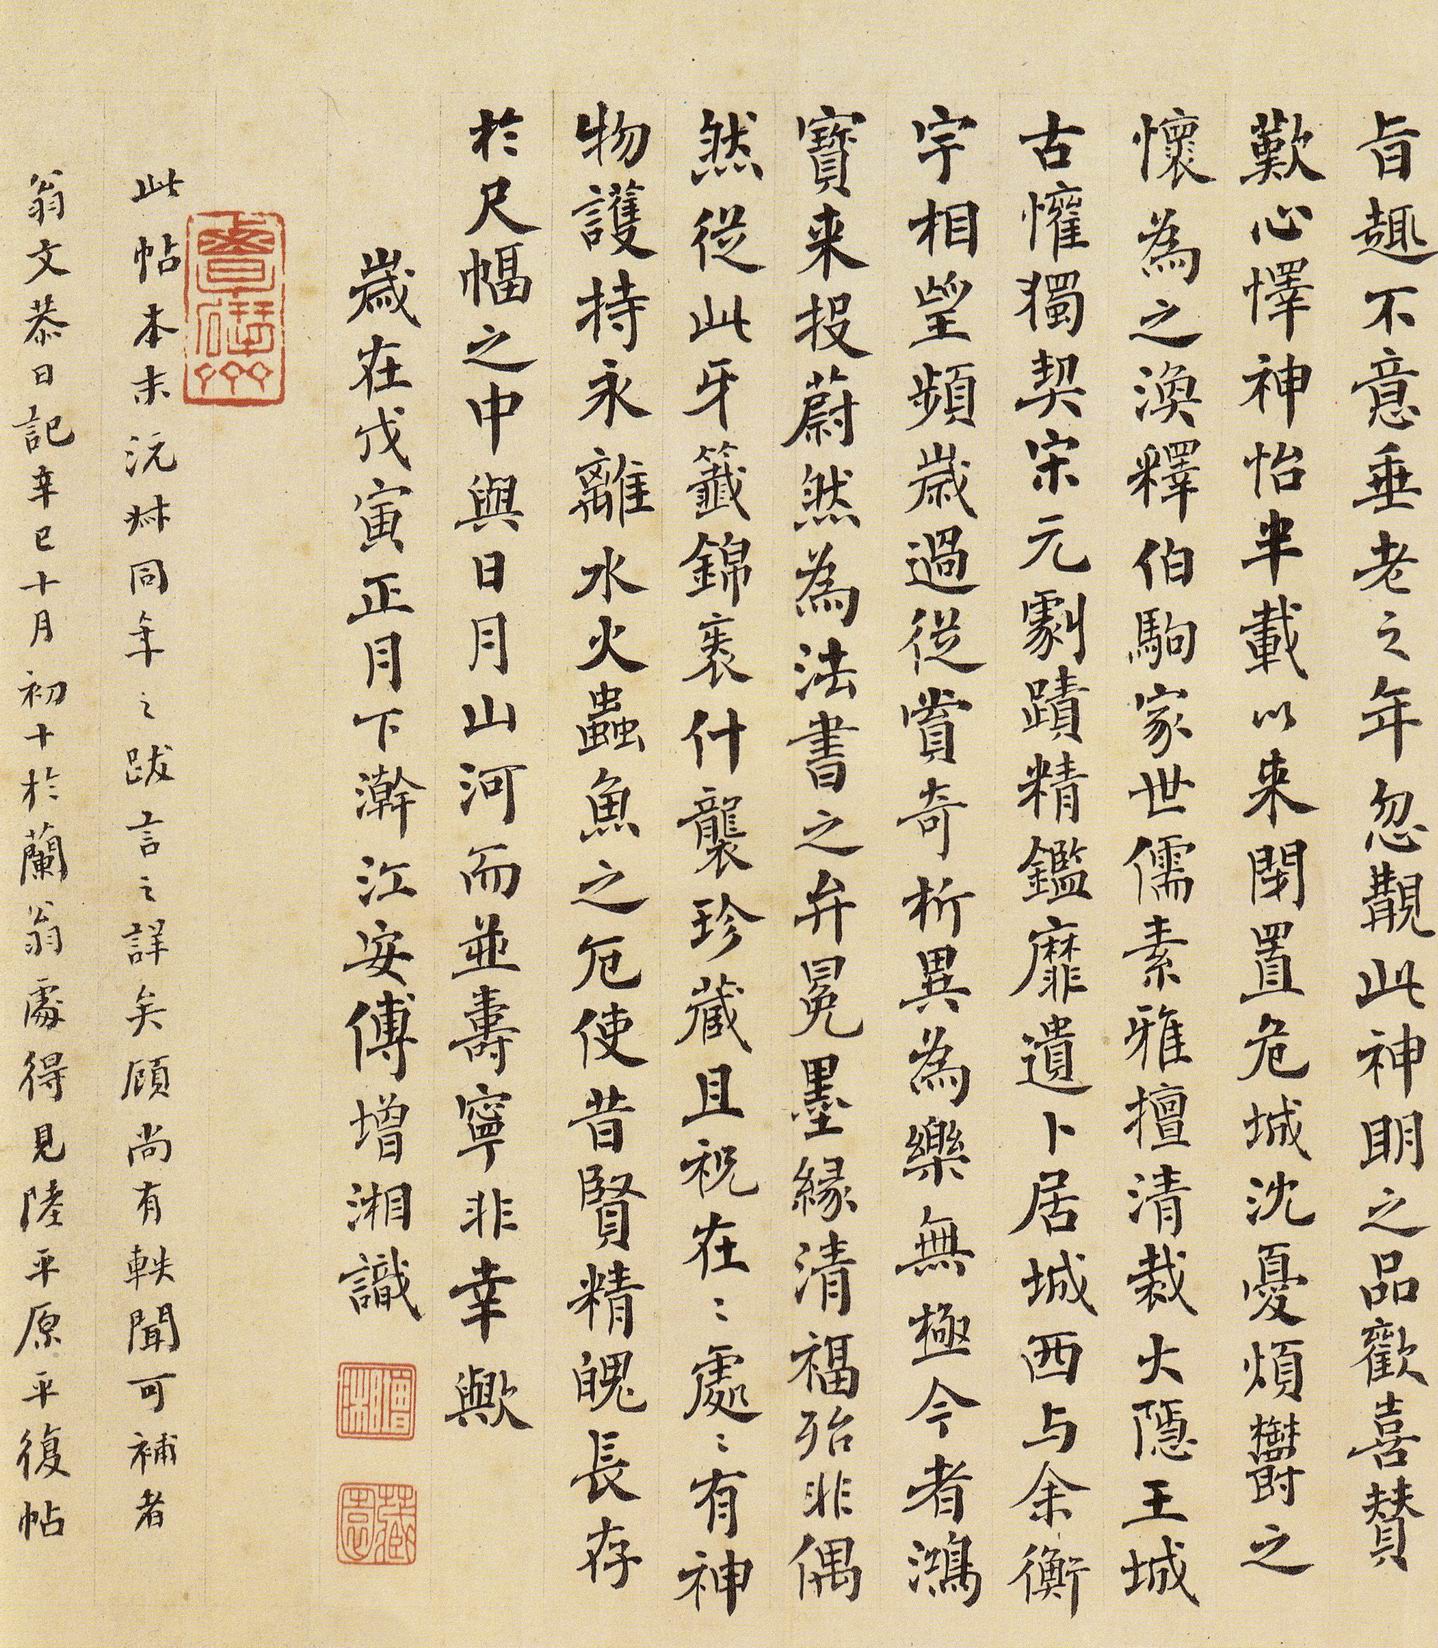 旨趣不意垂老之年忽覩此神明之品歡喜贊
歎心懌神怡半載以来閉置危城沈憂煩欝之
懷為之渙釋伯駒家世儒素雅擅清裁大隱王城
古懽獨契宋元劇蹟精鑑靡遺卜居城西与余衡
宇相望頻歲過從賞奇析異為樂無極今者鴻
寶来投蔚然為法書之弁冕墨緣清福殆非偶
然從此牙籤錦袠什襲珍藏且祝在〻處〻有神
物護持永離水火蟲魚之厄使昔賢精魄長存
於尺幅之中與日月山河而並壽寧非幸歟
歲在戊寅正月下澣江安傅增湘識
增湘
藏園
此帖本末沅叔同年之跋言之詳矣顧尚有軼聞可補者
翁文恭日記辛巳十月初十於蘭翁處得見陸平原平復帖